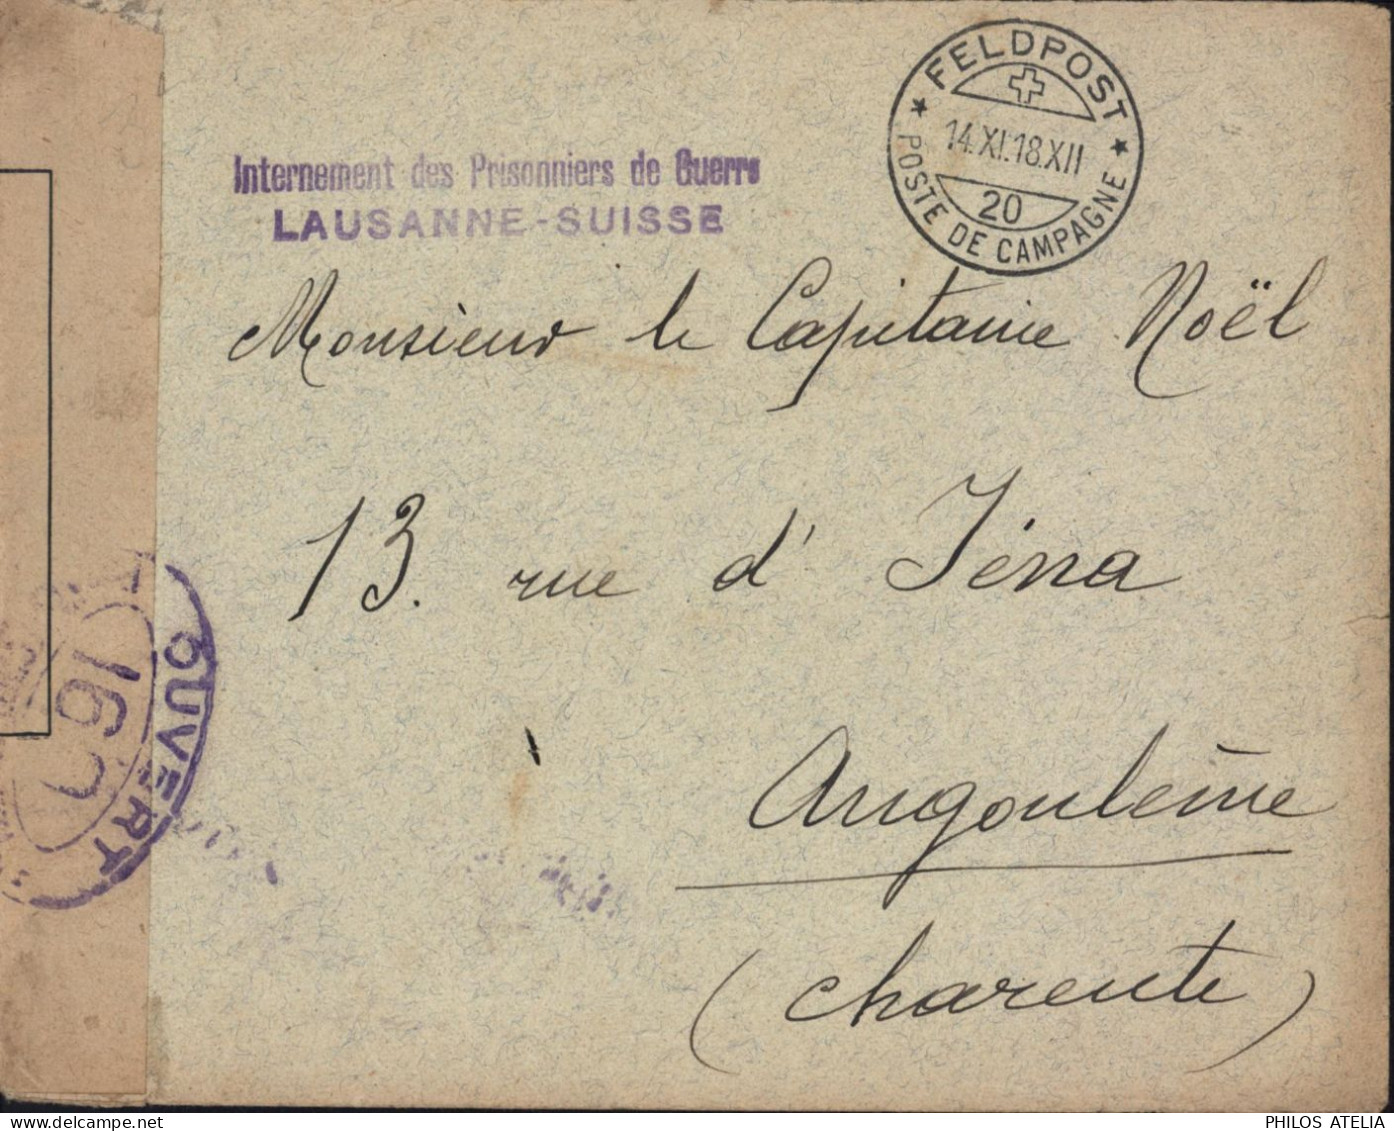 FELDPOST
14.XI.18.XII
20
POSTE DE CAMPAGNE
Internement des Prisonniers de Guerre
LAUSANNE-SUISSE
Monsieur le Capitaine Noël
13. rue d' Iéna
Angoulême
(Charente)
OUVERT
PHILOS ATELIA